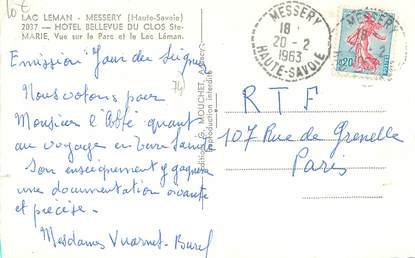 10 E
LAC LEMAN - MESSERY (Haute-Savoie)
2037 - HOTEL BELLEVUE DU CLOS Ste-
MARIE, Vue sur le Parc et le Lac Léman.
Emission "Jour du Seigneur
Nous votons pour
Monsieur l'Abbé quant
au voyage en Terre Sainte
Son enseignement y gagnera
une documentation vivante
et précise.
Mesdames Vuarnet-Burel
74
Editions G. MOUCHET
Reproduction interdite
MESSERY
18
20-2
1963
HAUTE-SAVOIE
MESSERY
0,20
R T F
107 Rue de Grenelle
Paris